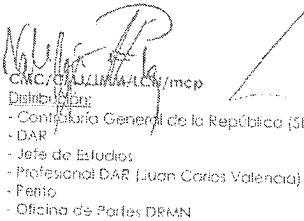 CMC/CAJ/JMM/LCN/mcp
Distribución:
- Contraloría General de la República
- DAR
- Jefe de Estudios
- Profesional DAR (Juan Carlos Valencia)
- Perito
- Oficina de Partes DRMN